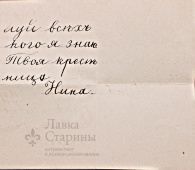 луй всѣхъ
кого я знаю
Твоя крест
ница
Нина.
Лавка
Старины